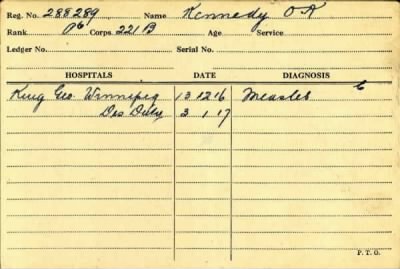 Reg. No. 288289 Name Kennedy O K
Rank Pte Corps. 221 B Age Service
Ledger No. Serial No.
HOSPITALS DATE DIAGNOSIS
King Geo. Winnipeg 13 12 16 Measles 6
Dis Duty 3 1 17
P. T. O.